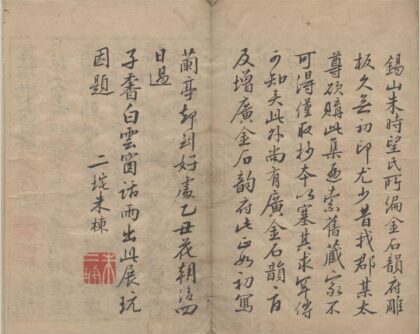 錫山朱時望氏所編金石韵府雕
板久矣初印尤少昔我郡某太
尊欲購此集遍索舊藏家不
可得僅取抄本以塞其求罕傳
可知矣此外尚有廣金石韻府
及增廣金石韵府此正如初寫
蘭亭却到好處乙丑花朝後四
日過
子耆白雲窗話雨出此展玩
因題
二垞朱棟